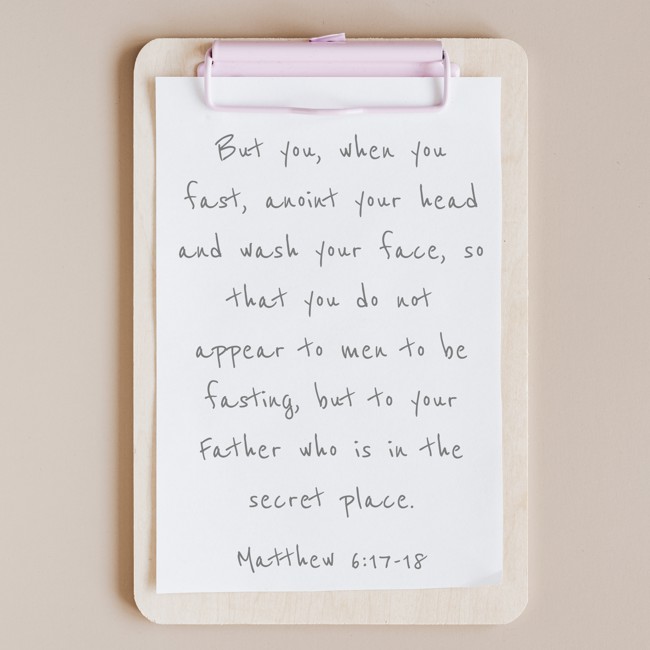 But you, when you
fast, anoint your head
and wash your face, so
that you do not
appear to men to be
fasting, but to your
Father who is in the
secret place.
Matthew 6:17-18